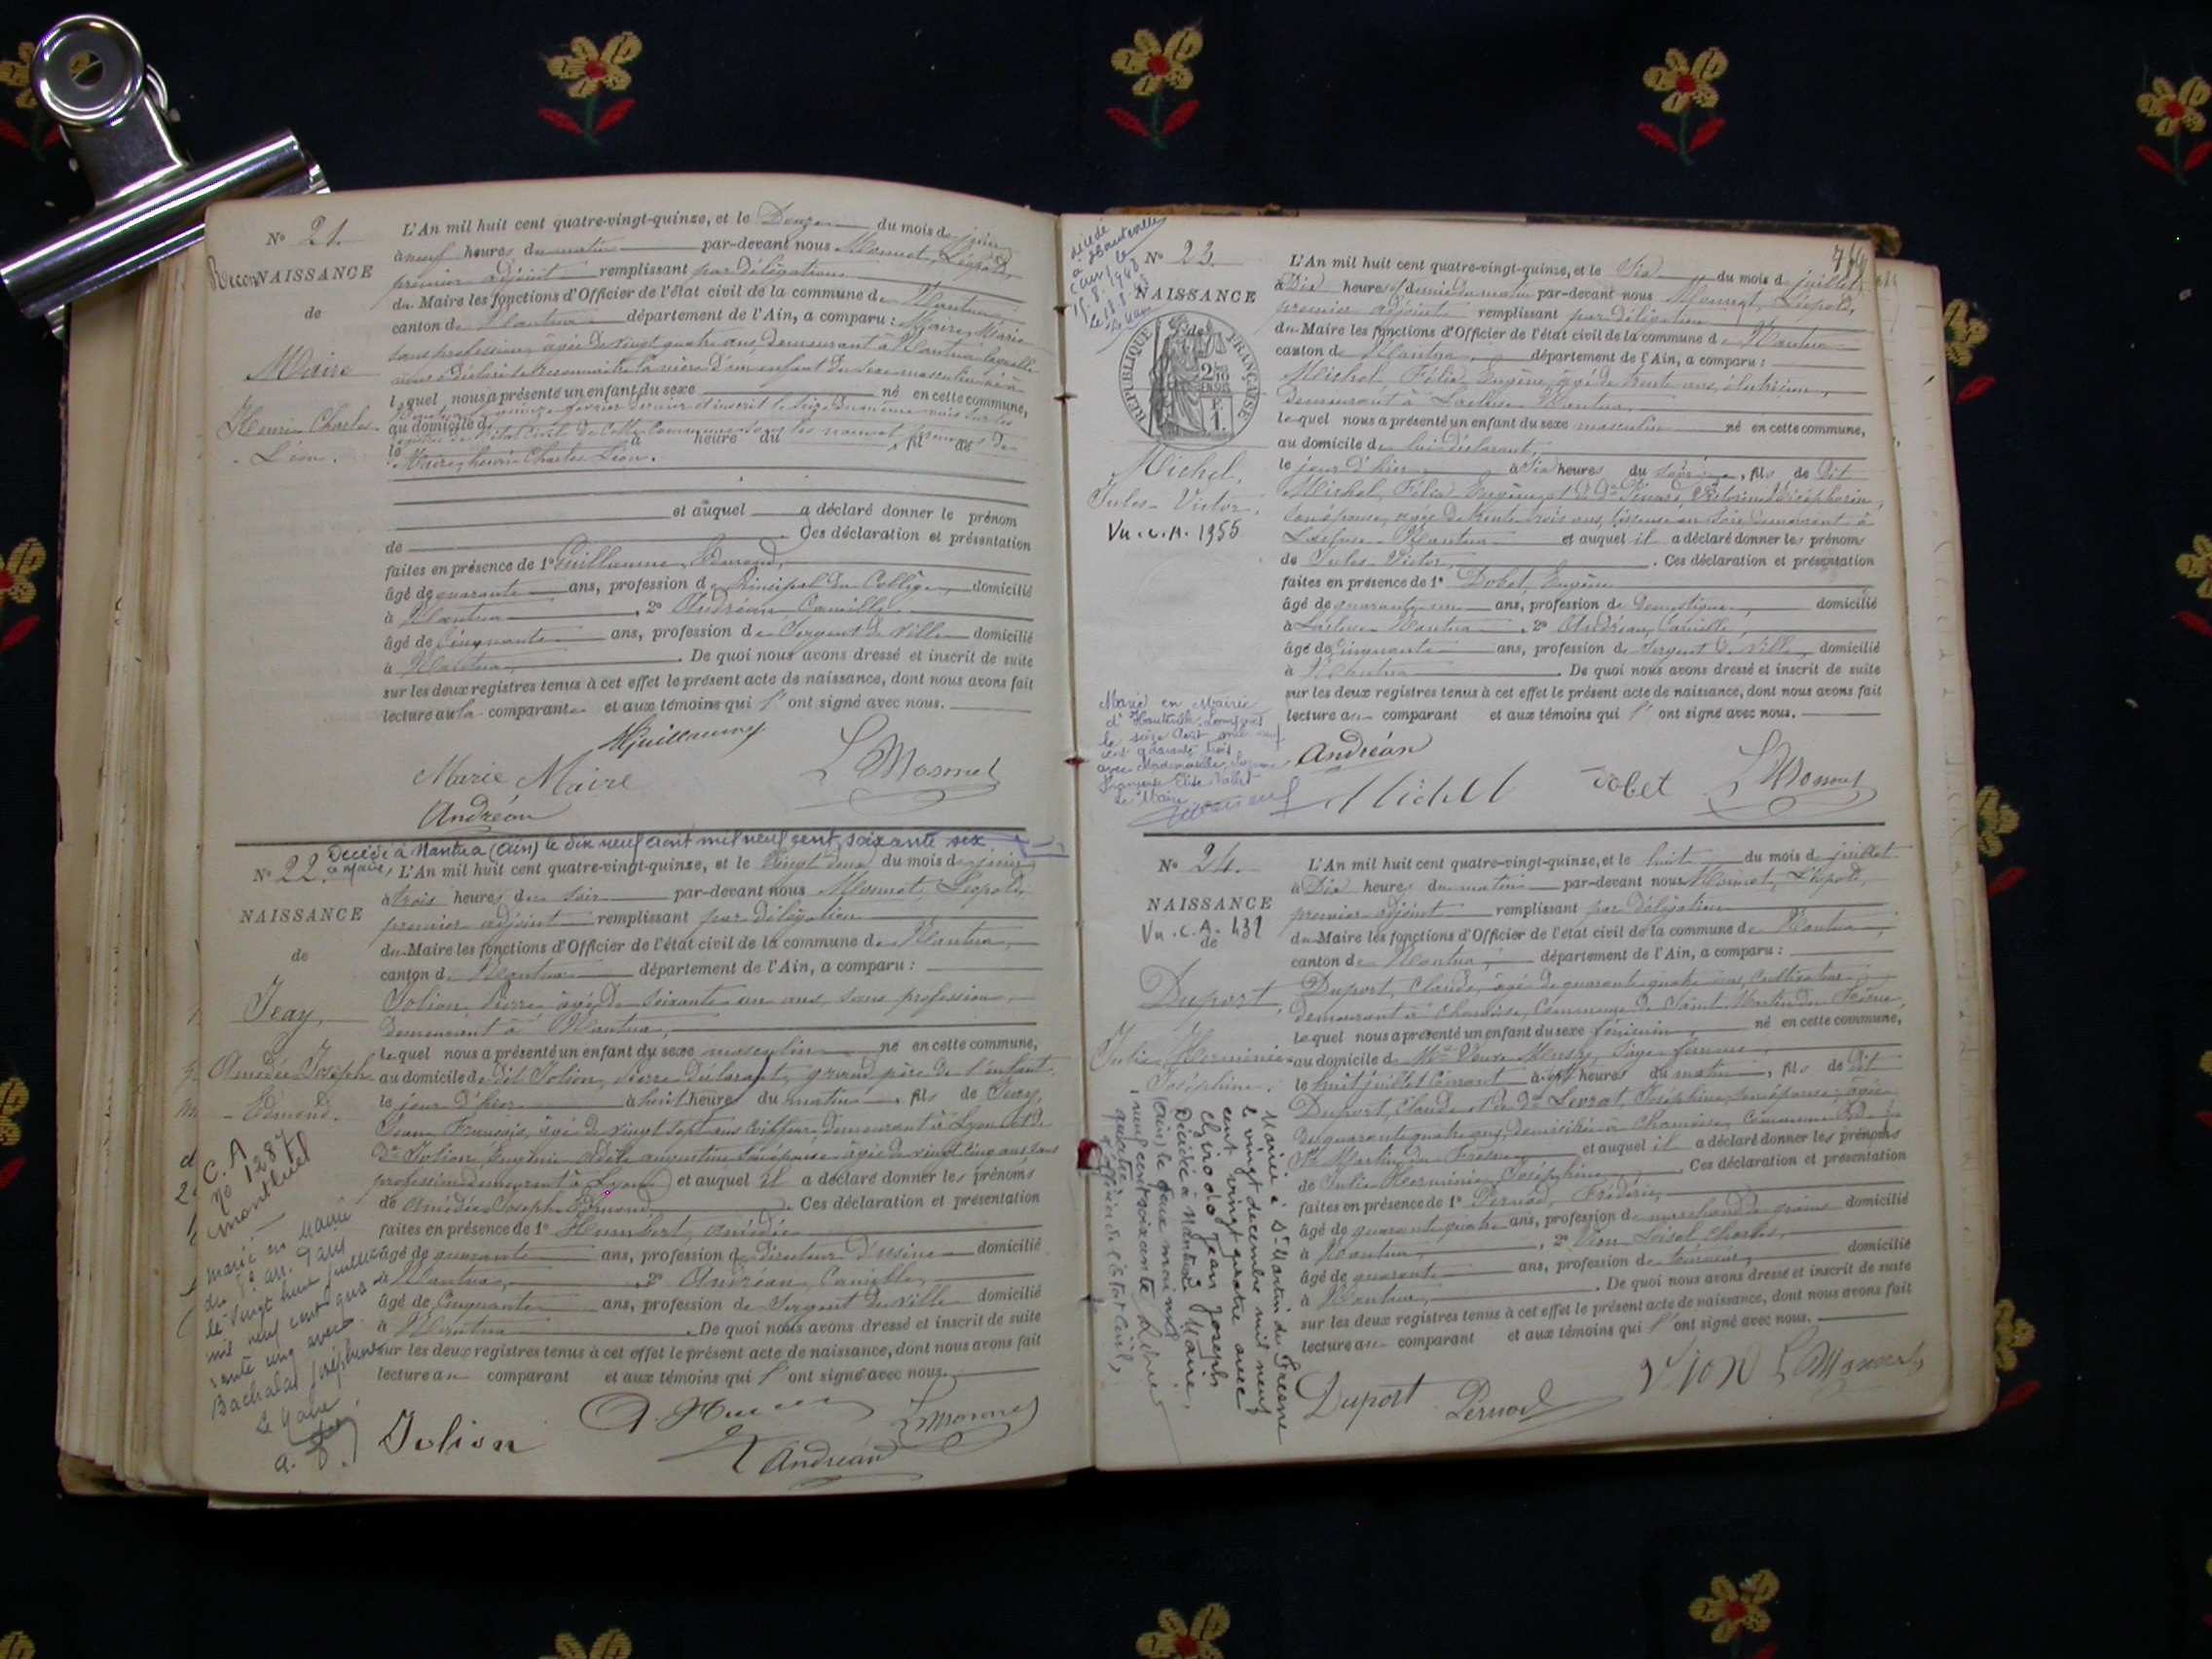 Nº 21.
ReconNAISSANCE
de
Maire
Henri Charles
Léon.
L'An mil huit cent quatre-vingt-quinze, et le Douze du mois de juin
à neuf heures du matin par-devant nous Monnet, Léopold,
premier adjoint remplissant par délégation
du Maire les fonctions d'Officier de l'état civil de la commune de Nantua
canton de Nantua département de l'Ain, a comparu : Maire, Marie
sans profession, âgée de vingt quatre ans, demeurant à Nantua laquelle
nous a déclaré se reconnaître la mère d'un enfant du sexe masculin né à
l quel nous a présenté un enfant du sexe né en cette commune,
Nantua le quinze février dernier et inscrit le seize du même mois sur les
au domicile d
registres de l'état civil de cette commune sous les nom et prénoms de
le à heure du , fil de
Maire, henri Charles Léon.
et auquel a déclaré donner le prénom
de . Ces déclaration et présentation
faites en présence de 1º Guillaume, Edmond,
âgé de quarante ans, profession de Principal du Collège, domicilié
à Nantua , 2º Andréan Camille
âgé de Cinquante ans, profession de Sergent de Ville domicilié
à Nantua, . De quoi nous avons dressé et inscrit de suite
sur les deux registres tenus à cet effet le présent acte de naissance, dont nous avons fait
lecture au la comparante et aux témoins qui l' ont signé avec nous.
Guillaume
Marie Maire
L Monnet
Andréan
Décédé à Nantua (Ain) le dix neuf août mil neuf cent soixante six.
Le Maire,
Nº 22.
NAISSANCE
de
Jeay,
Amédée Joseph
Edmond.
C. A
Nº 1287
Montluel
marié en mairie
du 8e arr. Paris
le vingt huit juillet
mil neuf cent qua
rante cinq avec
Bachalas Joséphine
Le Maire
L'An mil huit cent quatre-vingt-quinze, et le Vingt deux du mois de juin
à trois heures du soir par-devant nous Monnet, Léopold,
premier adjoint remplissant par délégation
du Maire les fonctions d'Officier de l'état civil de la commune de Nantua,
canton de Nantua département de l'Ain, a comparu :
Jolion Pierre âgé de soixante un ans, sans profession,
demeurant à Nantua,
lequel nous a présenté un enfant du sexe masculin né en cette commune,
au domicile de dit Jolion, Pierre déclarant, grand père de l'enfant
le jour d'hier à huit heures du matin , fils de Jeay,
Jean François, âgé de vingt sept ans coiffeur, demeurant à Lyon et de
De Jolion, Eugénie Adèle Augustine son épouse âgée de vingt cinq ans sans
profession demeurant à Lyon et auquel il a déclaré donner les prénoms
de Amédée Joseph Edmond . Ces déclaration et présentation
faites en présence de 1º Humbert, Amédée
âgé de quarante ans, profession de directeur d'usine domicilié
à Nantua, , 2º Andréan, Camille,
âgé de Cinquante ans, profession de Sergent de ville domicilié
à Nantua . De quoi nous avons dressé et inscrit de suite
sur les deux registres tenus à cet effet le présent acte de naissance, dont nous avons fait
lecture au comparant et aux témoins qui l' ont signé avec nous.
Jolion
L Monnet
Andréan
744
décédé
à Hauteville
(Ain) le
15.8.1943
Le Maire
Nº 23.
NAISSANCE
de
RÉPUBLIQUE FRANÇAISE
Michel,
Jules-Victor.
Vu. C. A. 1955
Marié en Mairie
d'Hauteville-Lompnes
le seize Août mil neuf
cent quarante trois
avec Mademoiselle
Françoise Elise Vallet
Le Maire
L'An mil huit cent quatre-vingt-quinze, et le Six du mois de juillet,
à Dix heures et demie du matin par-devant nous Monnet, Léopold,
premier adjoint remplissant par délégation
du Maire les fonctions d'Officier de l'état civil de la commune de Nantua
canton de Nantua, département de l'Ain, a comparu :
Michel Félix Eugène, âgé de trente ans, électricien,
demeurant à Lacluse Nantua,
lequel nous a présenté un enfant du sexe masculin né en cette commune,
au domicile de lui déclarant,
le jour d'hier à Six heures du soir , fils de Dit
Michel, Félix Eugène, et de De
son épouse, âgée de trente trois ans, tisseuse en soie demeurant à
Lacluse Nantua et auquel il a déclaré donner les prénoms
de Jules Victor, . Ces déclaration et présentation
faites en présence de 1º Dobet, Eugène
âgé de quarante un ans, profession de Domestique, domicilié
à Lacluse Nantua , 2º Andréan, Camille,
âgé de Cinquante ans, profession de Sergent de Ville domicilié
à Nantua . De quoi nous avons dressé et inscrit de suite
sur les deux registres tenus à cet effet le présent acte de naissance, dont nous avons fait
lecture au comparant et aux témoins qui l' ont signé avec nous.
Andréan
Michel Dobet L Monnet
Nº 24.
NAISSANCE
Vu. C. A. 431
de
Duport,
Julie Herminie
Joséphine.
Mariée à St Martin du Fresne
le vingt décembre mil neuf
cent vingt quatre avec
Girodo Jean Joseph
Le Maire,
Décédée à Nantua
(Ain) le deux mai mil
neuf cent soixante
quatre.
L'Officier de l'état civil,
L'An mil huit cent quatre-vingt-quinze, et le huit du mois de juillet
à Dix heures du matin par-devant nous Monnet, Léopold,
premier adjoint remplissant par délégation
du Maire les fonctions d'Officier de l'état civil de la commune de Nantua,
canton de Nantua, département de l'Ain, a comparu :
Duport, Claude, âgé de quarante quatre ans, Cultivateur
demeurant à Chamoise, Commune de Saint Martin du Fresne,
lequel nous a présenté un enfant du sexe féminin né en cette commune,
au domicile de Mme Veuve sage-femme
le huit juillet Courant à heures du matin , fil de Dit
Duport, Claude et de De Levrat, Joséphine, son épouse, âgée
de quarante quatre ans, domiciliée à Chamoise, Commune de
St Martin du Fresne et auquel il a déclaré donner les prénoms
de Julie Herminie Joséphine . Ces déclaration et présentation
faites en présence de 1º Pernod, Frédéric,
âgé de quarante quatre ans, profession de marchand de grains domicilié
à Nantua, , 2º Vion Loisel, Charles,
âgé de quarante ans, profession de domicilié
à Nantua, . De quoi nous avons dressé et inscrit de suite
sur les deux registres tenus à cet effet le présent acte de naissance, dont nous avons fait
lecture au comparant et aux témoins qui l' ont signé avec nous.
Duport Pernod Vion L Monnet